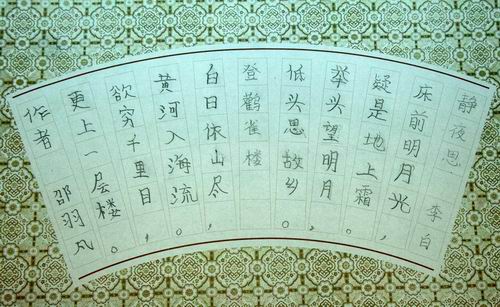 静夜思 李白
床前明月光，
疑是地上霜。
举头望明月，
低头思故乡。
登鹳雀楼
白日依山尽，
黄河入海流。
欲穷千里目，
更上一层楼。
作者 邵羽凡